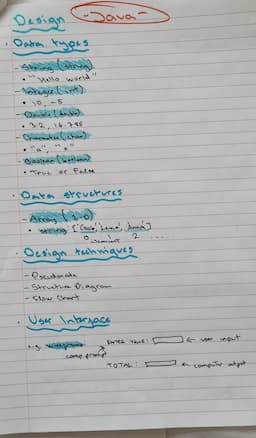 Design
- Java -
• Data types
- String (string)
• "Hello World"
- Integer (int)
• 10, -5
• 3.2, 16.795
- Character (char)
• "a", "
- Boolean (boolean)
• True or False
• Data structures
- Array (1-D)
0 2 ...
• Design techniques
- Pseudocode
- Structure Diagram
- Flow Chart
• User Interface
e.g.
comp prompt
ENTER : ← user input
TOTAL : ← computer output